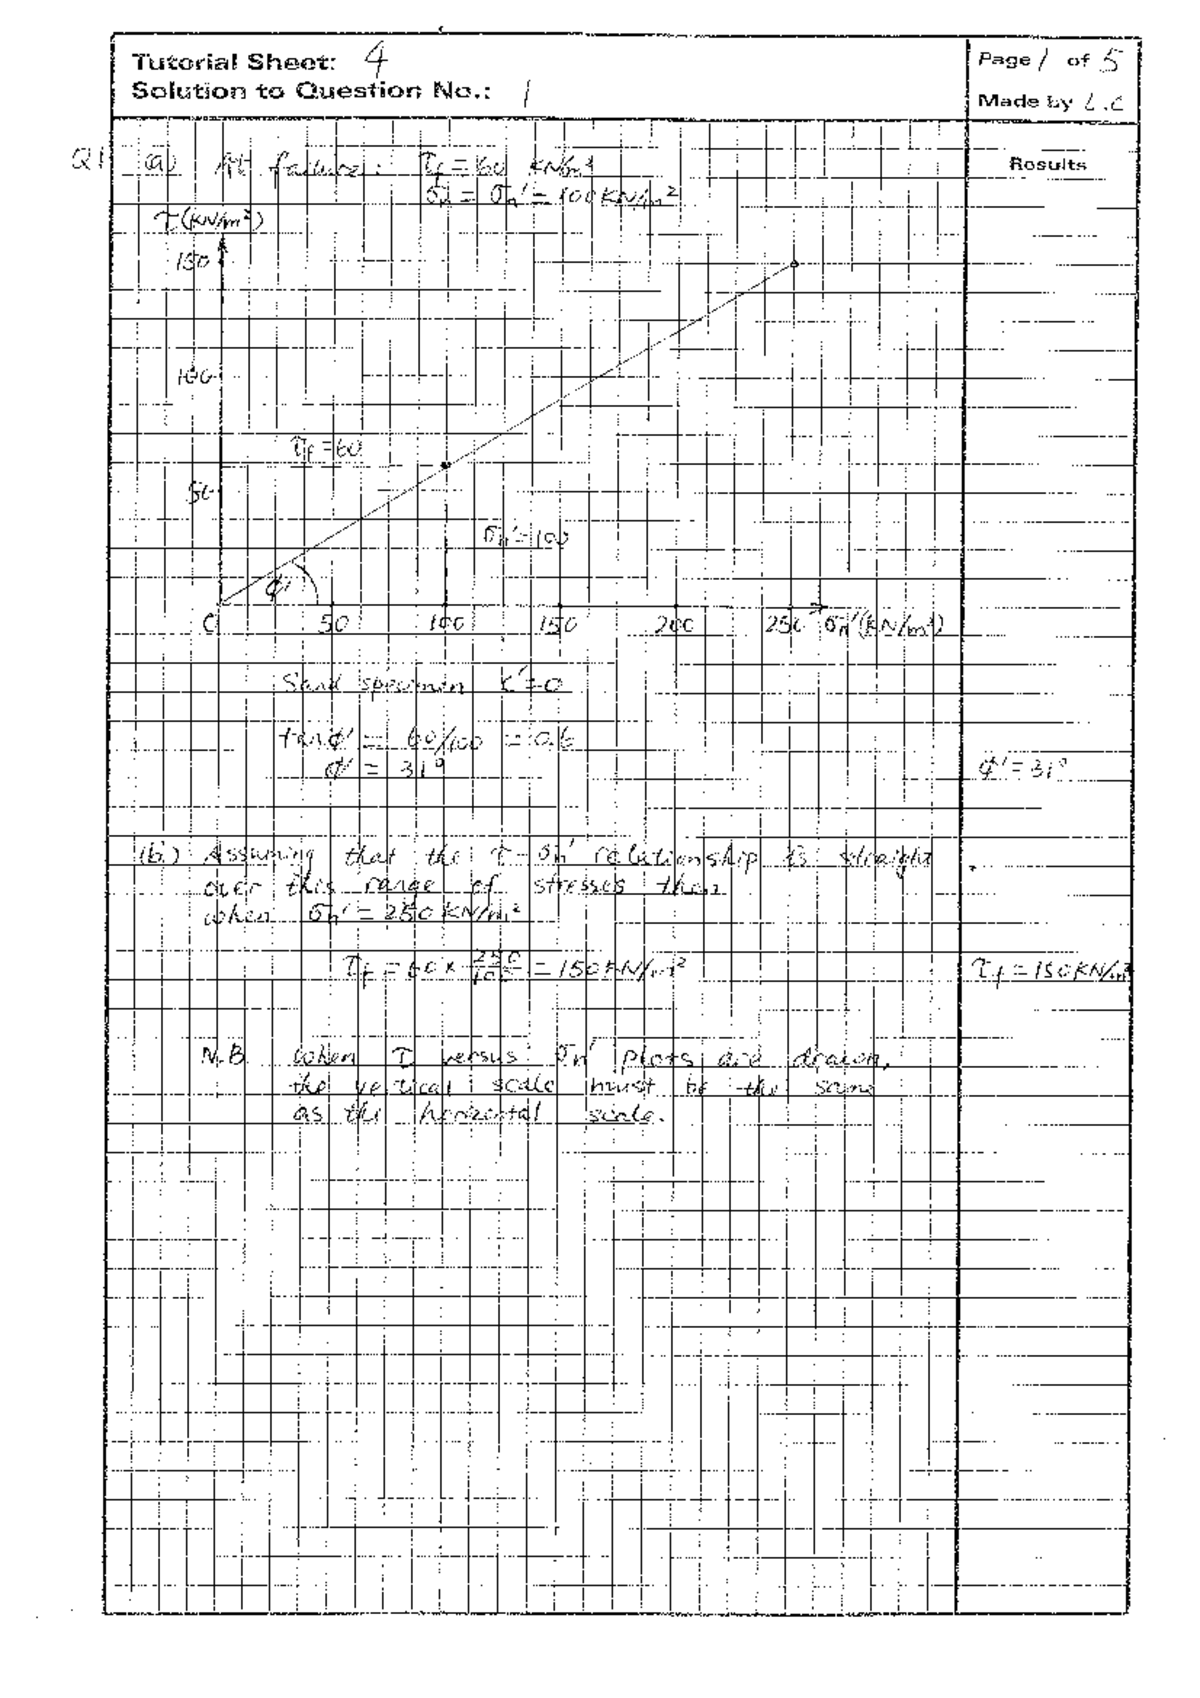 Tutorial Sheet: 4
Solution to Question No.: 1
Page 1 of 5
Made by L.C
Results
Q1 (a) At failure: τf = 60 kN/m²
σn = σn' = 100 kN/m²
τ (kN/m²)
150
100
τf = 60
50
σn' = 100
φ'
0 50 100 150 200 250 σn' (kN/m²)
Sand specimen c' = 0
tan φ' = 60/100 = 0.6
φ' = 31°
φ' = 31°
(b) Assuming that the τ - σn' relationship is straight
over this range of stresses then
when σn' = 250 kN/m²
τf = 60 x 250/100 = 150 kN/m²
τf = 150 kN/m²
N.B. when τ versus σn' plots are drawn,
the vertical scale must be the same
as the horizontal scale.